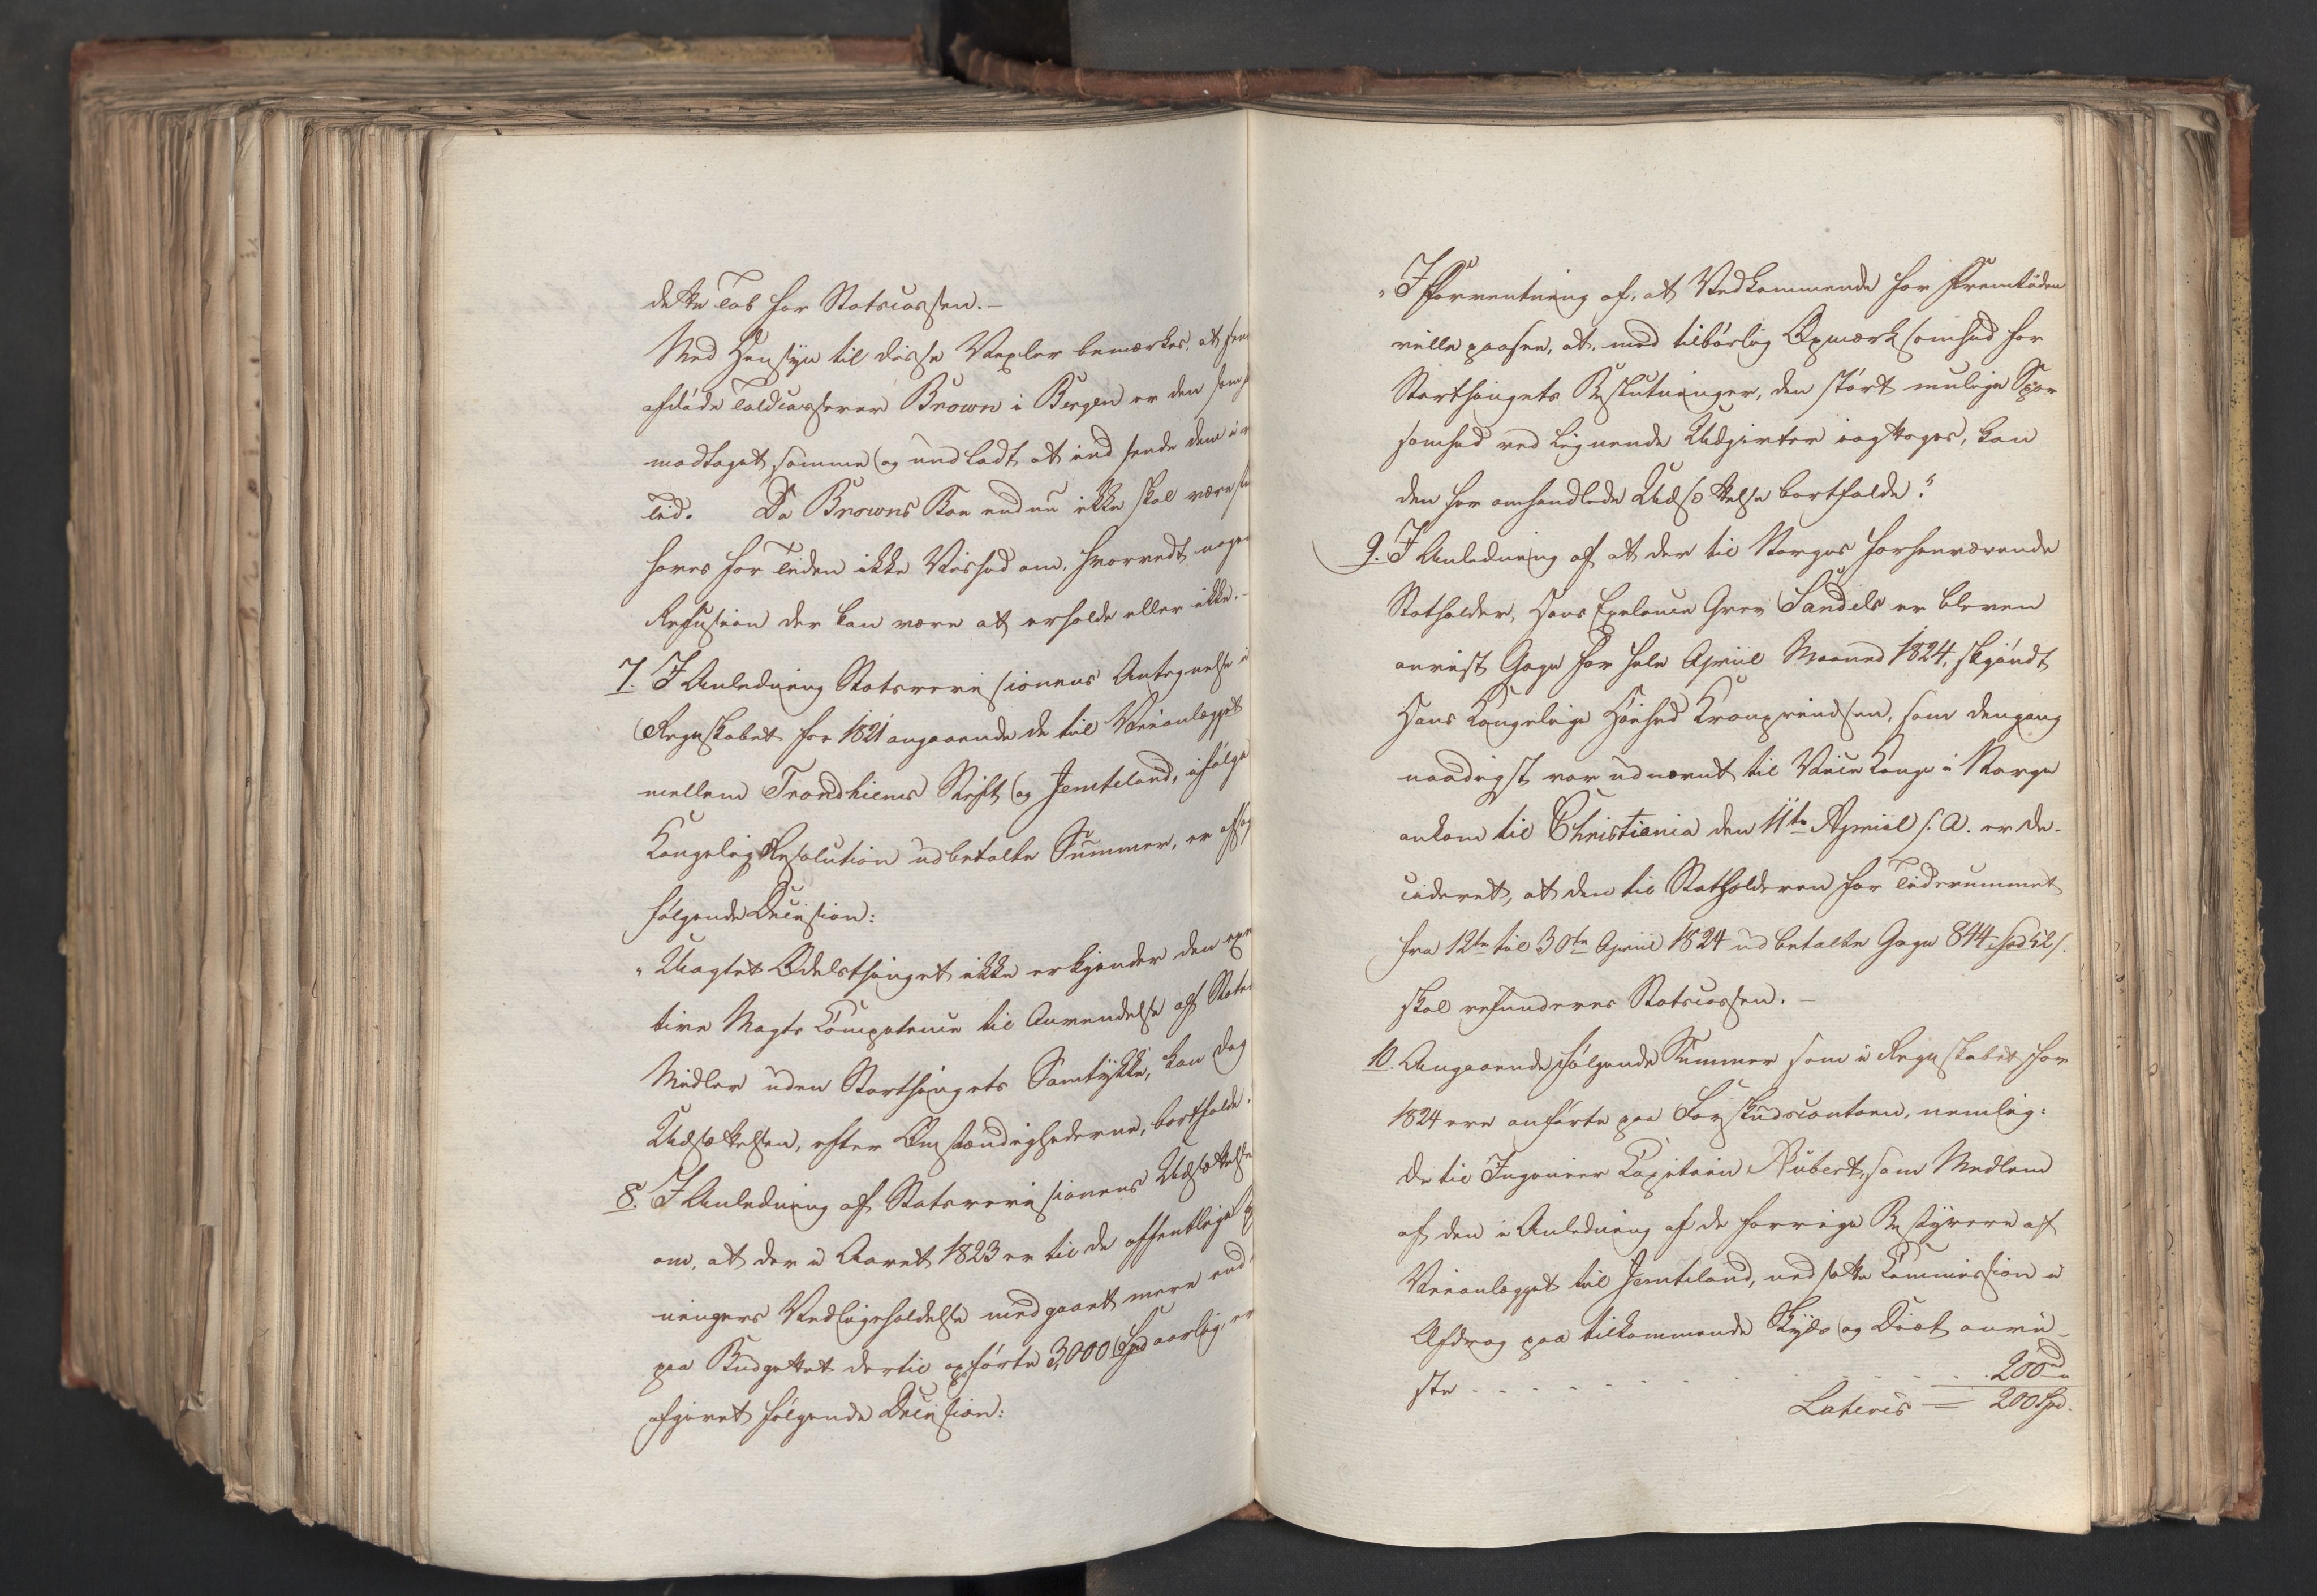 dette Tab for Statscassen.—
Med Hensyn til disse Vexler bemærkes, at
afdøde Toldcasserer Brown i Bergen er den som
modtaget samme og undladt at indsende dem i
Tid. Da Browns Boe endnu ikke skal være
haves for Tiden ikke Vished om, hvorvidt nogen
Refusion der kan være at erholde eller ikke.—
7. I Anledning Statsrevisionens Antegnelse i
Regnskabet for 1821 angaaende de til Veianlægget
mellem Trondhiems Stift og Jemteland, ifølge
Kongelig Resolution udbetalte Summer, er
følgende Decision:
"Uagtet Odelsthinget ikke erkjender den
tive Magts Competence til Anvendelse af Statens
Midler uden Storthingets Samtykke, kan dog
Udsættelsen, efter Omstændighederne, bortfalde.
8. I Anledning af Statsrevisionens Udsættelse
om, at der i Aaret 1823 er til de offentlige
ningers Vedligeholdelse medgaaet mere end
paa Budgettet dertil opførte 3,000 Spd aarlig, er
afgivet følgende Decision:
"I Forventning af, at Vedkommende for Fremtiden
ville paasee, at, med tilbørlig Opmærksomhed for
Storthingets Beslutninger, den størst mulige Spar
somhed ved lignende Udgivter iagttages, kan
den her omhandlede Udsættelse bortfalde."
9. I Anledning af at der til Norges forhenværende
Statholder, Hans Excelence Grev Sandels er bleven
anvist Gage for hele April Maaned 1824, skjøndt
Hans Kongelige Høihed Kronprindsen, som dengang
naadigst var udnævnt til Vice Konge i Norge
ankom til Christiania den 11te April s. A. er de-
cideret, at den til Statholderen for Tidsrummet
fra 12te til 30te April 1824 udbetalte Gage 844 Spd 52 s.
skal refunderes Statscassen.—
10. Angaaende følgende Summer som i Regnskabet for
1824 ere anførte paa Forskudscontoen, nemlig:
de til Ingenieur Capitain Rübert, som Medlem
af den i Anledning af de forrige Bestyrere af
Veianlægget til Jemteland, nedsatte Commission i
Afdrag paa tilkommende Skyds og Diæt anvi-
ste . . . . . . . . . . . . 200 "
Lateris = 200 Spd.